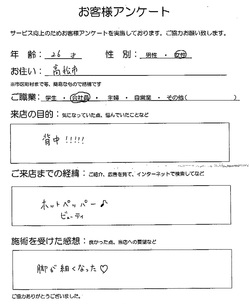 お客様アンケート
サービス向上のためお客様アンケートを実施しております。ご協力お願い致します。
年 齢： 26 才 性 別： 男性 ・ 女性
お住い： 高松市
※市区町村まで可、簡易なもので結構です
ご職業： 学生 ・ 会社員 ・ 主婦 ・ 自営業 ・ その他（ ）
来店の目的： 気になっていた点、悩んでいたことなど
背中!!!!!
ご来店までの経緯： ご紹介、広告を見て、インターネットで検索してなど
ホットペッパー♪
ビューティ
施術を受けた感想： 良かった点、当店への要望など
脚が細くなった♡
ご協力ありがとうございました。